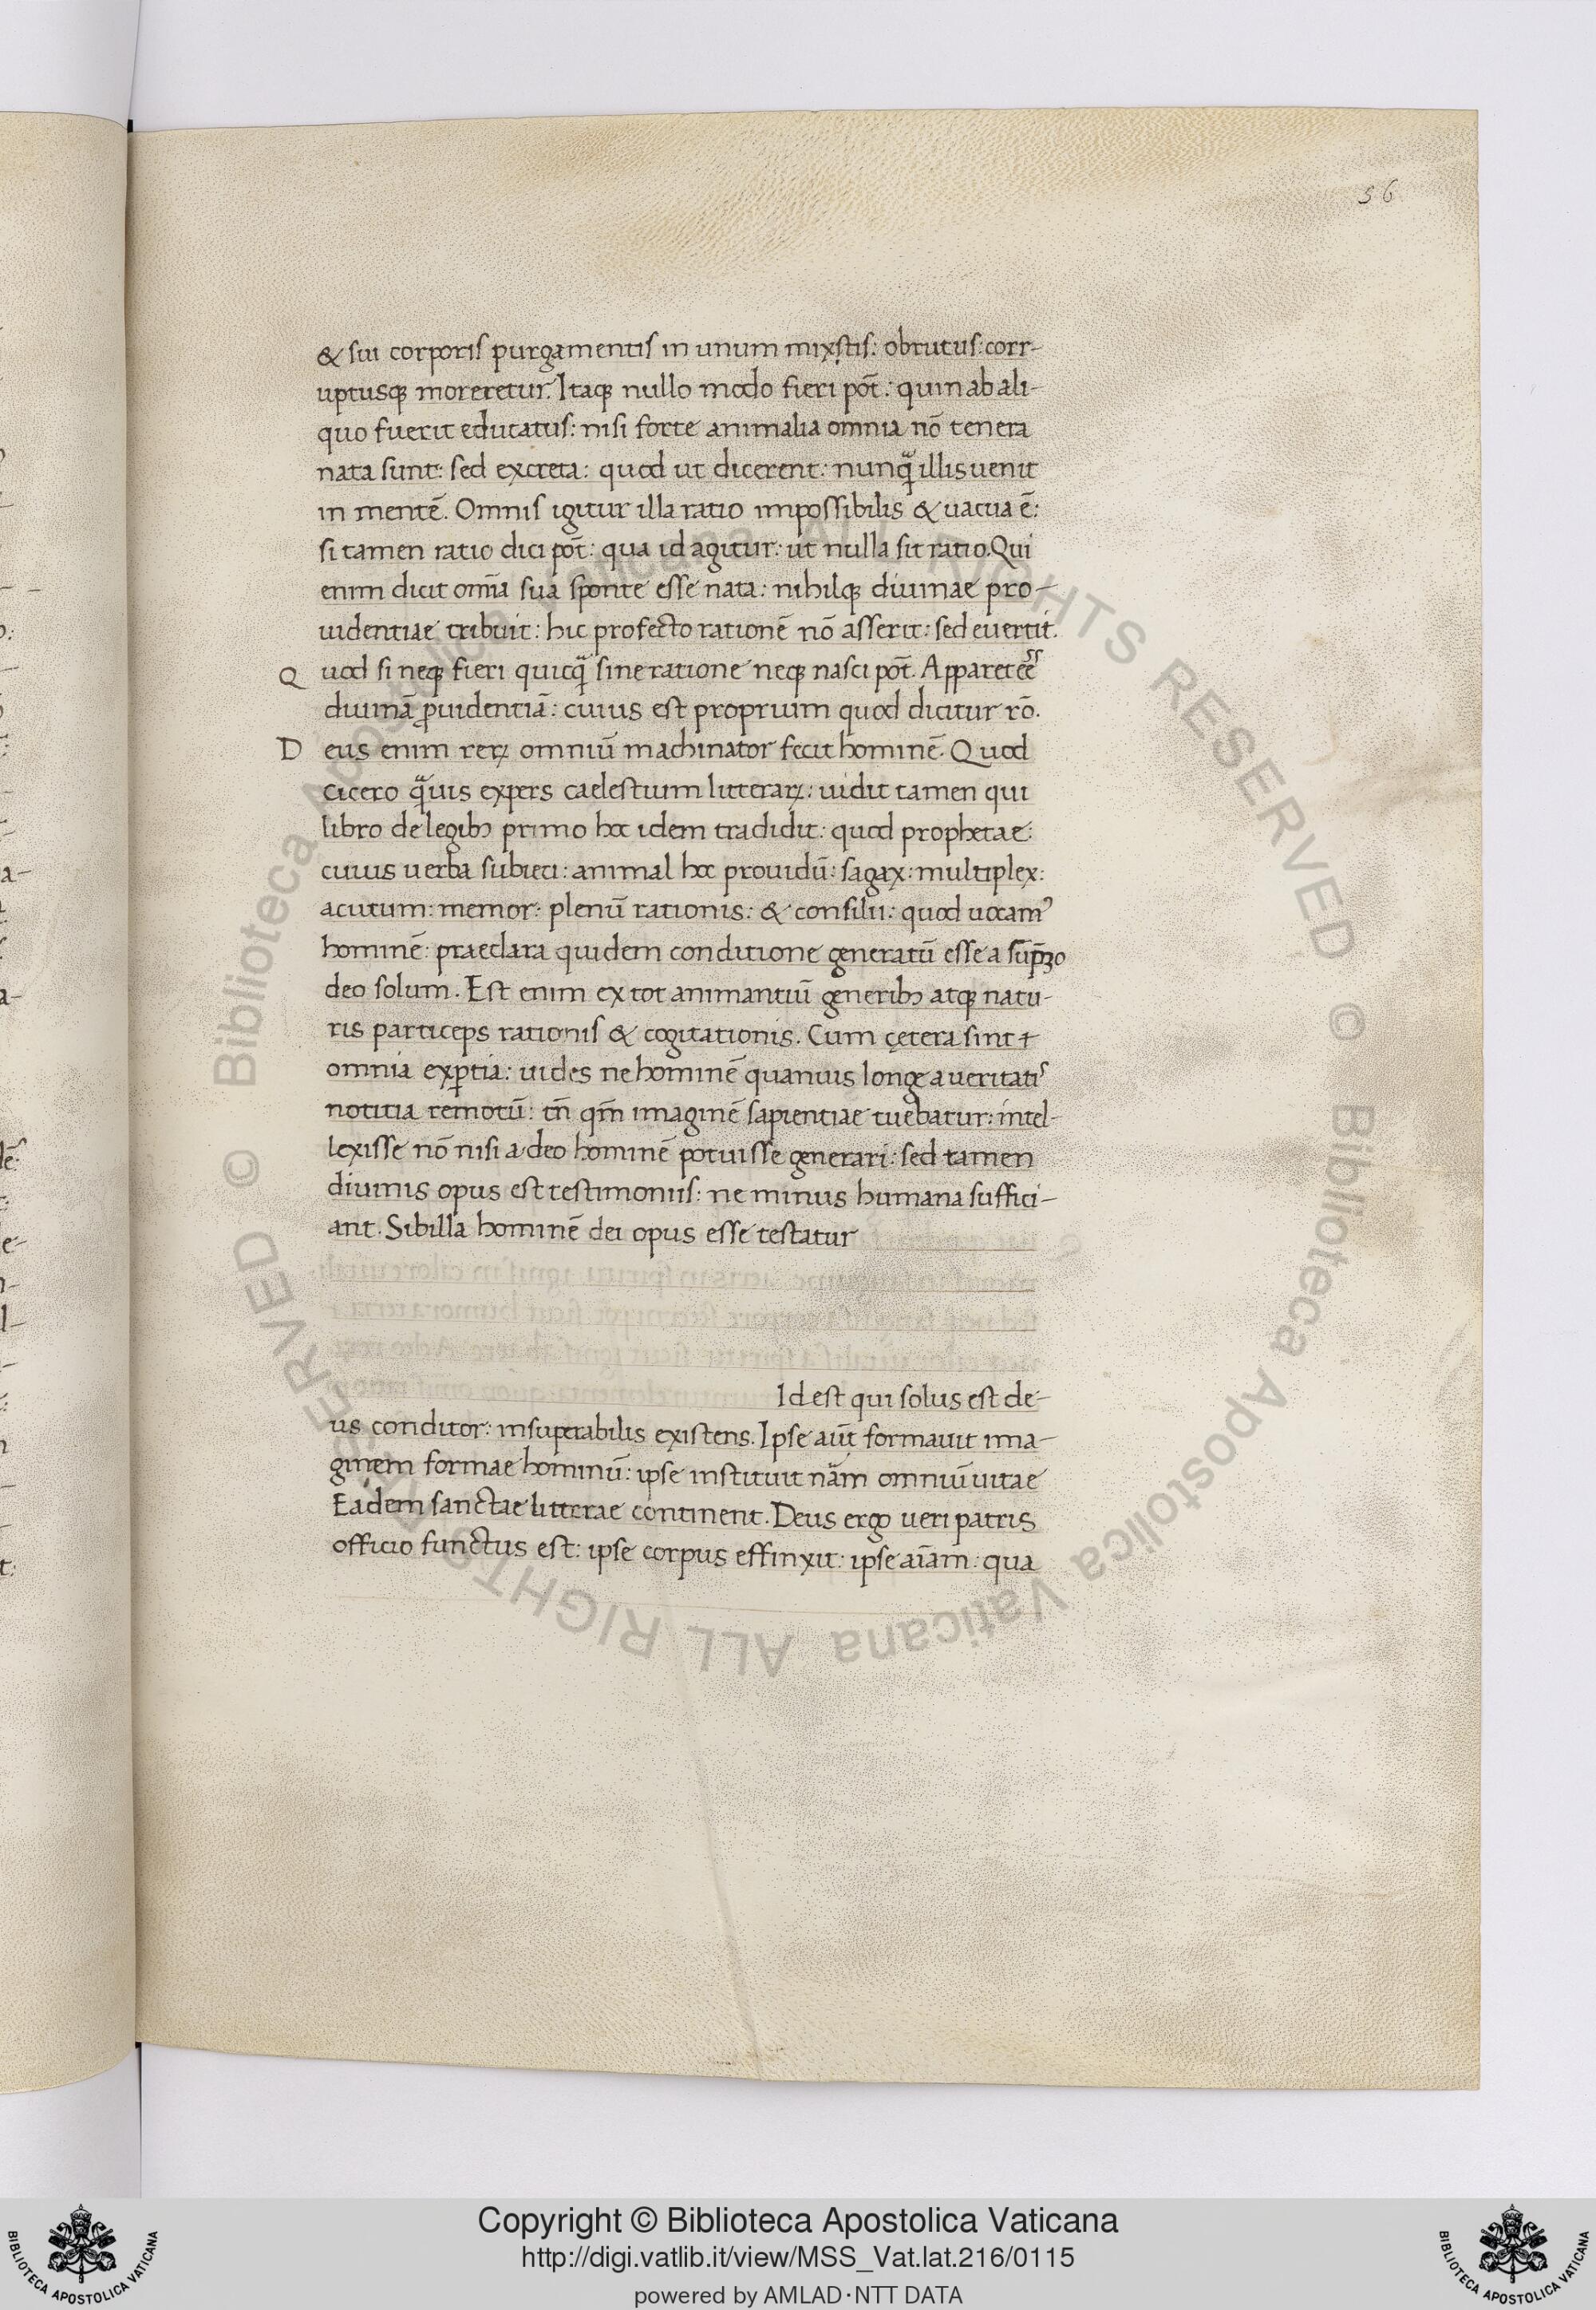 56
& sui corporis purgamentis in unum mixstis: obrutus: corr-
uptusq; moreretur. Itaq; nullo modo fieri pot̄: quin ab ali-
quo fuerit educatus: nisi forte animalia omnia nō tenera
nata sunt: sed excreta: quod ut dicerent: nunq̄ illis uenit
in mentē. Omnis igitur illa ratio impossibilis & uacua ē:
si tamen ratio dici pot̄: qua id agitur: ut nulla sit ratio. Qui
enim dicit om̄ia sua sponte esse nata: nihilq; diuinae pro-
uidentiae tribuit: hic profecto rationē nō asserit: sed euertit.
Quod si neq; fieri quicq̄ sine ratione neq; nasci pot̄. Apparet eē
diuinā ꝓuidentiā: cuius est proprium quod dicitur rō.
Deus enim rerꝝ omniū machinator fecit hominē. Quod
cicero q̄uis expers caelestium litterarꝝ: uidit tamen qui
libro de legibꝫ primo hoc idem tradidit: quod prophetae:
cuius uerba subieci: animal hoc prouidū: sagax: multiplex:
acutum: memor: plenū rationis: & consilii: quod uocamꝰ
hominē: praeclara quidem conditione generatū esse a sup̄mo
deo solum. Est enim ex tot animantiū generibꝫ atq; natu-
ris particeps rationis & cogitationis. Cum çetera sint
omnia exꝑtia: uides ne hominē quanuis longe a ueritatis
notitia remotū: tn̄ qm̄ imaginē sapientiae tuebatur: intel-
lexisse nō nisi a deo hominē potuisse generari: sed tamen
diuinis opus est testimoniis: ne minus humana suffici-
ant. Sibilla hominē dei opus esse testatur
Id est qui solus est de-
us conditor: insuperabilis existens. Ipse aut̄ formauit ima-
ginem formae hominū: ipse instituit nām omniū uitae
Eadem sanctae litterae continent. Deus ergo ueri patris
officio functus est: ipse corpus effinxit: ipse aīam: qua
© Biblioteca Apostolica Vaticana ALL RIGHTS RESERVED © Biblioteca Apostolica Vaticana ALL RIGHTS RESERVED
Copyright © Biblioteca Apostolica Vaticana
http://digi.vatlib.it/view/MSS_Vat.lat.216/0115
powered by AMLAD·NTT DATA
BIBLIOTECA APOSTOLICA VATICANA
BIBLIOTECA APOSTOLICA VATICANA